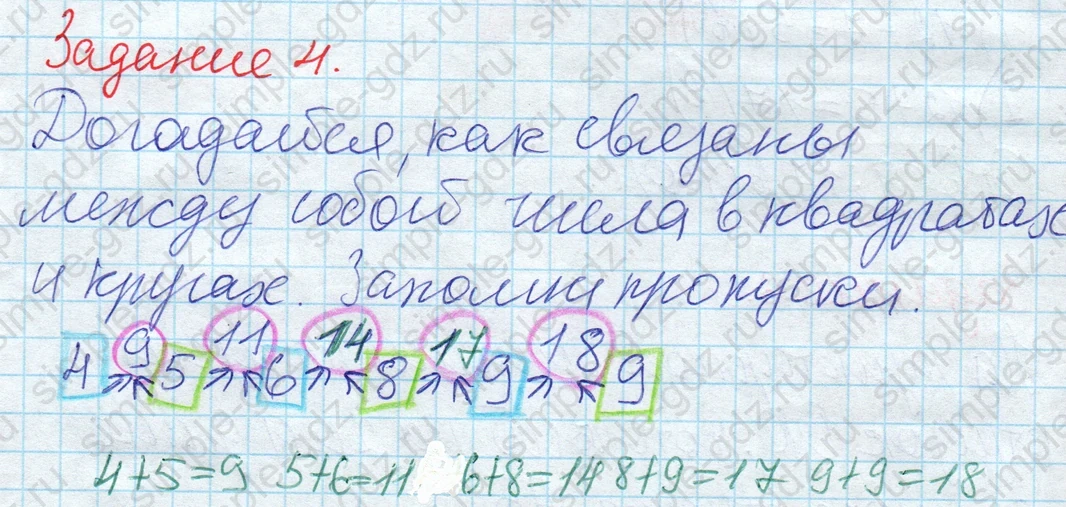 Задание 4.
Догадайся, как связаны
между собой числа в квадратах
и кругах. Заполни пропуски.
9 11 14 17 18
4 5 6 8 9 9
4+5=9 5+6=11 6+8=14 8+9=17 9+9=18
simple-gdz.ru